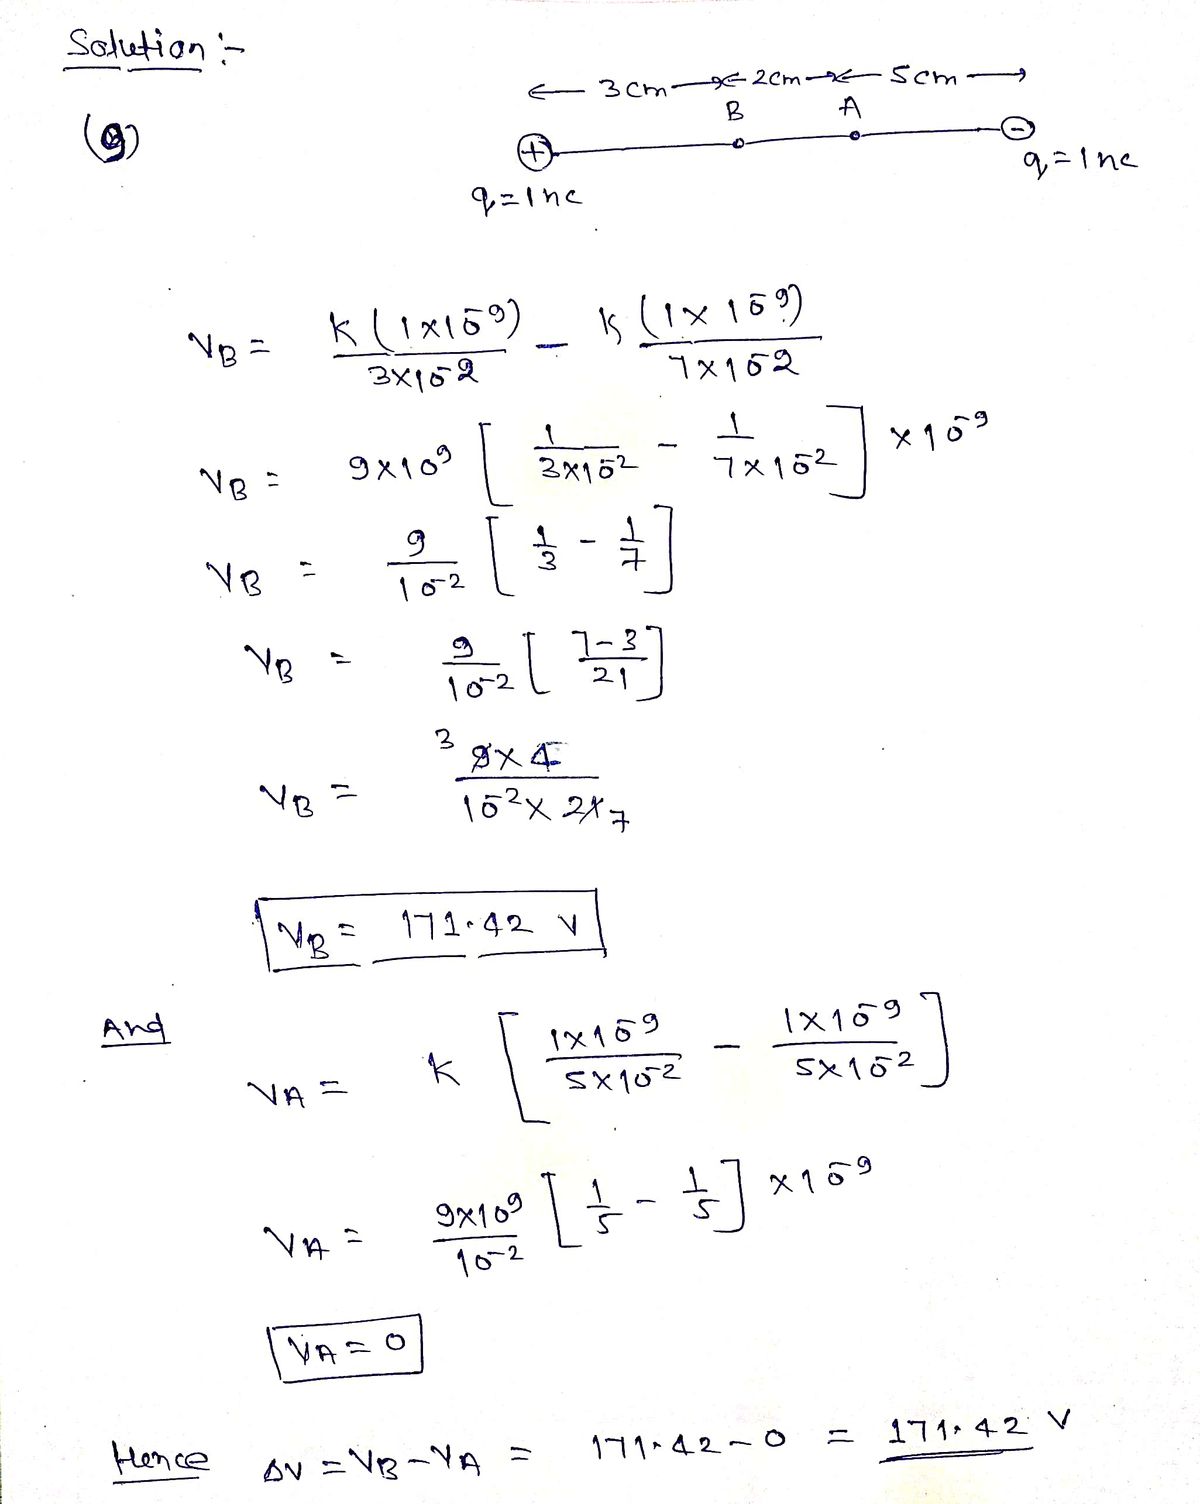 Solution :-
← 3cm →← 2cm →← 5cm →
(9)
B A
+ -
q=1nc q=1nc
VB = K(1×10⁻⁹)/3×10⁻² - K(1×10⁻⁹)/7×10⁻²
VB = 9×10⁹ [1/3×10⁻² - 1/7×10⁻²] ×10⁻⁹
VB = 9/10⁻² [1/3 - 1/7]
VB = 9/10⁻² [7-3/21]
VB = 3 9×4/10⁻²×21 7
VB = 171.42 V
And
VA = K [1×10⁻⁹/5×10⁻² - 1×10⁻⁹/5×10⁻²]
VA = 9×10⁹/10⁻² [1/5 - 1/5] ×10⁻⁹
VA = 0
Hence ΔV = VB - VA = 171.42 - 0 = 171.42 V